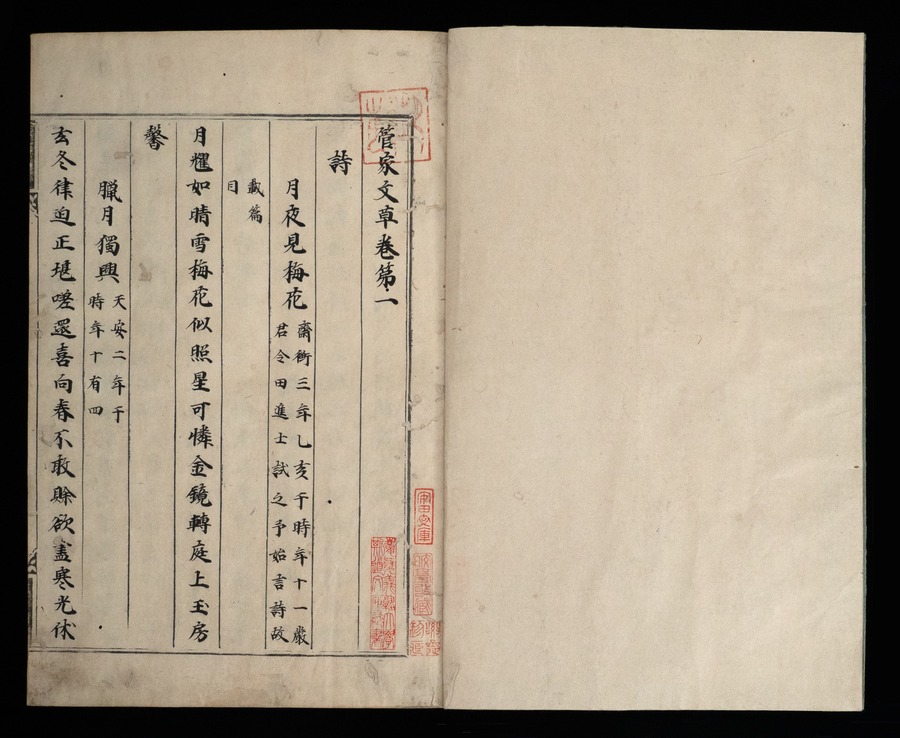 菅家文草卷第一
詩
月夜見梅花
齊衡三年乙亥于時年十一嚴
君令田進士試之予始言詩故
載篇
目
月耀如晴雪梅花似照星可憐金鏡轉庭上玉房
馨
臘月獨興
天安二年于
時年十有四
玄冬律迫正堪嗟還喜向春不敢賖欲盡寒光休